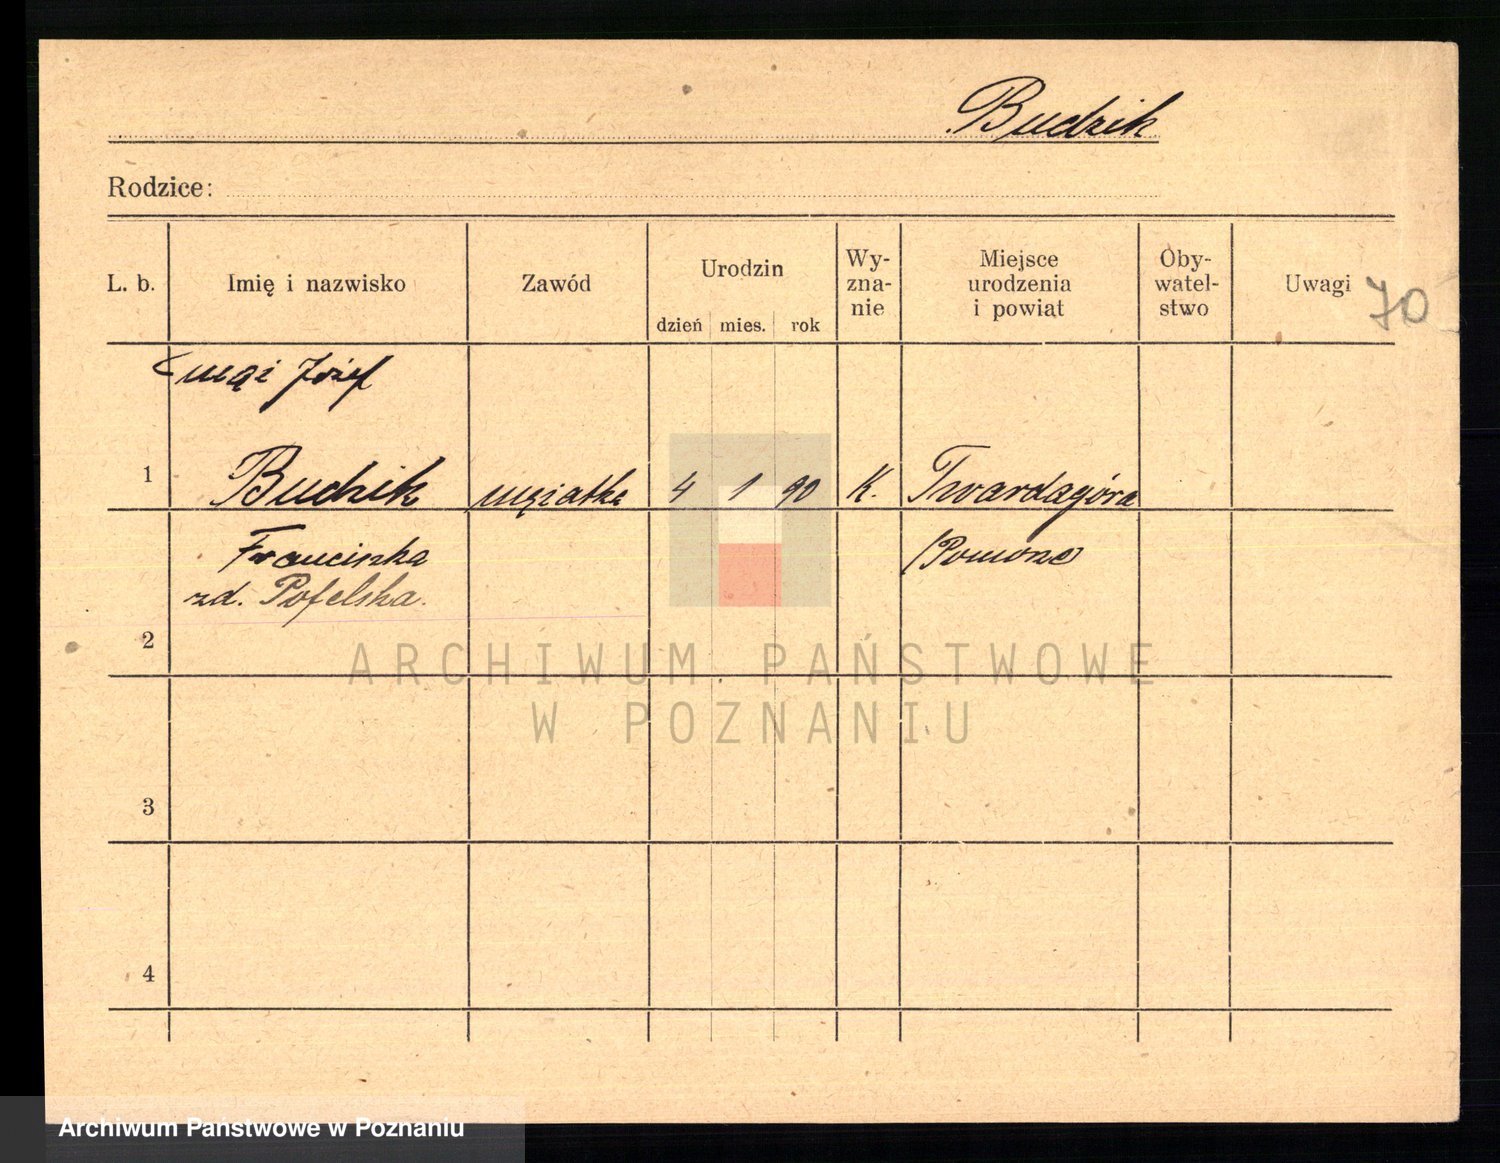 Budzik
Rodzice:
L. b.
Imię i nazwisko
Zawód
Urodzin
dzień mies. rok
Wy-
zna-
nie
Miejsce
urodzenia
i powiat
Oby-
watel-
stwo
Uwagi 70
mąż Józef
1 Budzik mężatka 4 1 90 K. Twardagóra
Franciszka (Pomorze)
zd. Pofelska.
2
3
4
ARCHIWUM PAŃSTWOWE
W POZNANIU
Archiwum Państwowe w Poznaniu